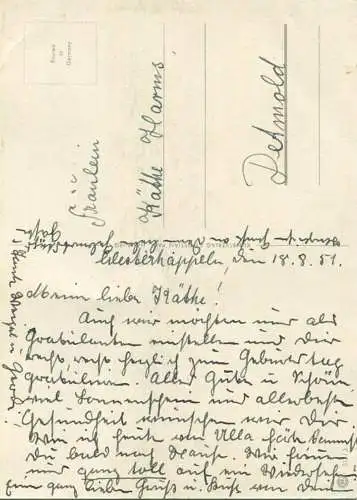 Printed
in
Germany
Fräulein
Käthe Harms
Detmold
Westerkappeln, den 18.8.51.
Meine liebe Käthe!
Auch wir möchten uns als
Gratulanten einstellen und Dir
recht, recht herzlich zum Geburtstag
gratulieren. Alles Gute u. Schöne
viel Sonnenschein und allerbeste
Gesundheit wünschen wir Dir
Wie ich heute von Ulla hörte kommst
du bald nach Hause. Wir freuen
uns ganz toll auf ein Wiedersehen
Eine ganz lieben Gruß u. Kuß von dem